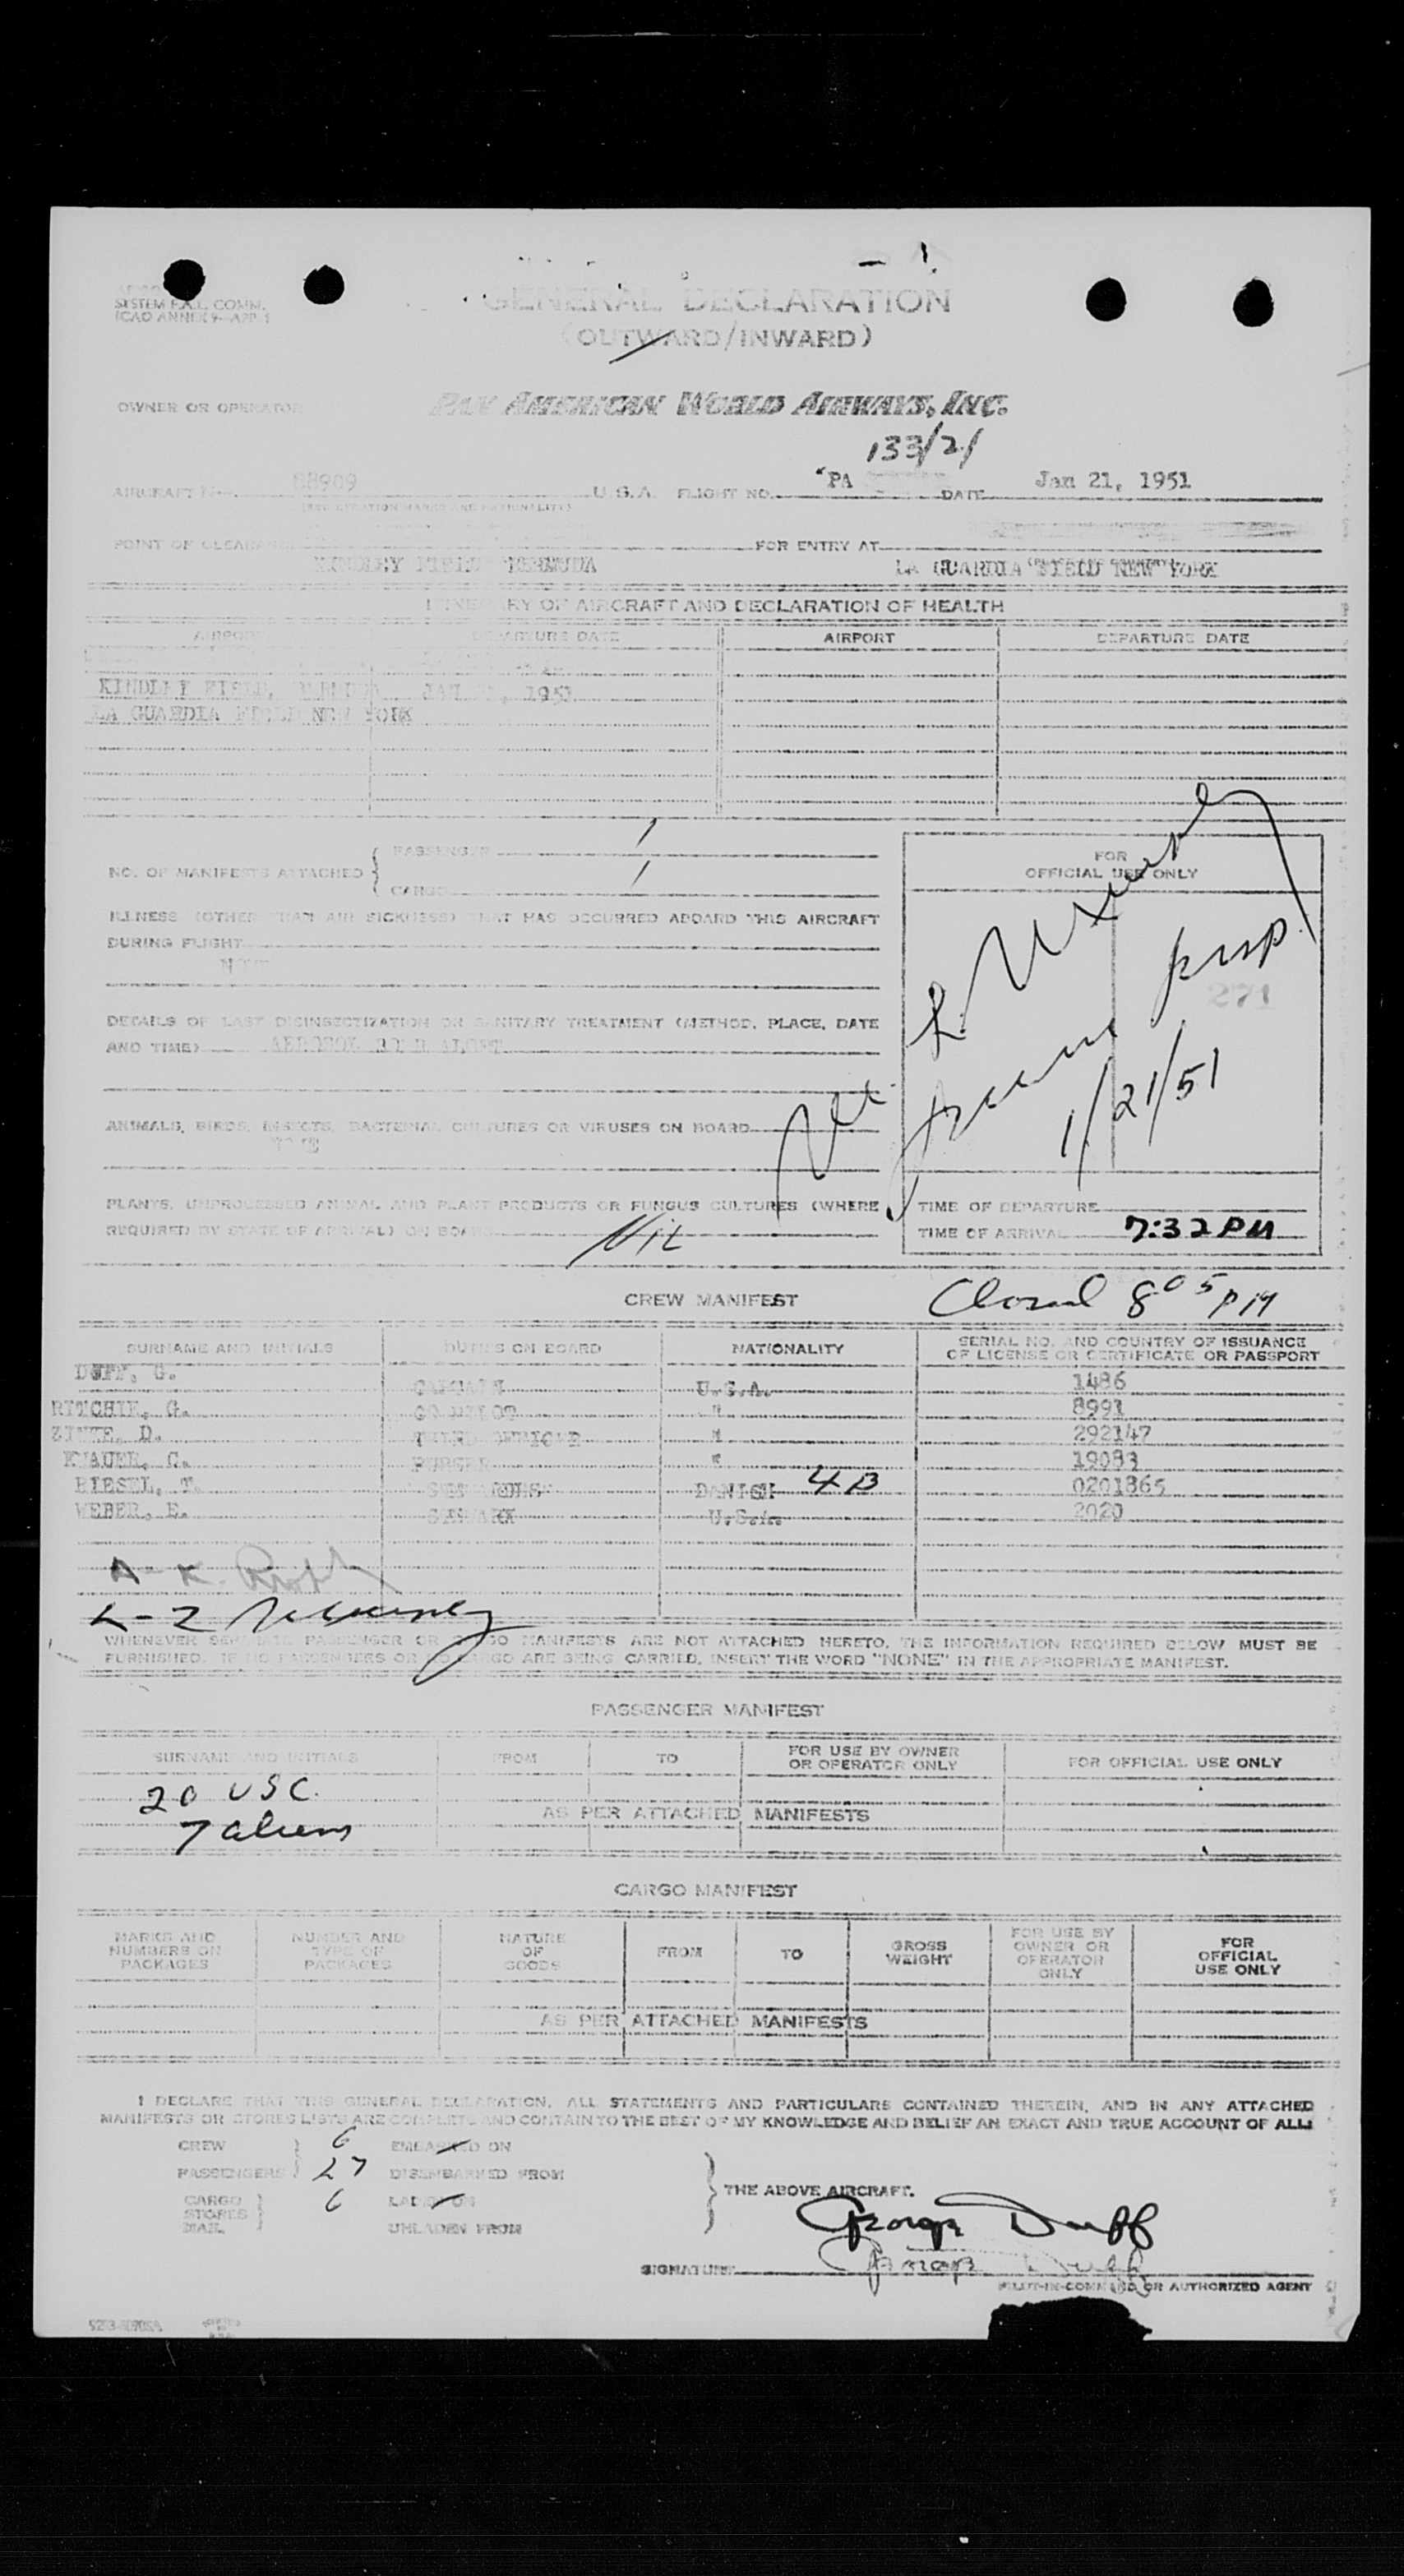 SYSTEM F.A.L. COMM.
ICAO ANNEX 9—APP. 1
GENERAL DECLARATION
(OUTWARD/INWARD)
OWNER OR OPERATOR PAN AMERICAN WORLD AIRWAYS, INC.
133/21
AIRCRAFT 88909 U.S.A. FLIGHT NO. PA DATE Jan 21, 1951
POINT OF CLEARANCE FOR ENTRY AT
KINDLEY FIELD BERMUDA LA GUARDIA FIELD NEW YORK
ITINERARY OF AIRCRAFT AND DECLARATION OF HEALTH
AIRPORT DEPARTURE DATE AIRPORT DEPARTURE DATE
KINDLEY FIELD, BERMUDA JAN 21, 1951
LA GUARDIA FIELD NEW YORK
NO. OF MANIFESTS ATTACHED { PASSENGER 1
CARGO 1
FOR
OFFICIAL USE ONLY
ILLNESS (OTHER THAN AIR SICKNESS) THAT HAS OCCURRED ABOARD THIS AIRCRAFT
DURING FLIGHT
271
DETAILS OF LAST DISINSECTIZATION OR SANITARY TREATMENT (METHOD, PLACE, DATE
AND TIME) AEROSOL BOMB ALOFT
1/21/51
ANIMALS, BIRDS, INSECTS, BACTERIAL CULTURES OR VIRUSES ON BOARD
PLANTS, UNPROCESSED ANIMAL AND PLANT PRODUCTS OR FUNGUS CULTURES (WHERE
REQUIRED BY STATE OF ARRIVAL) ON BOARD Nil
TIME OF DEPARTURE
TIME OF ARRIVAL 7:32 PM
CREW MANIFEST Closed 8 05 PM
SURNAME AND INITIALS DUTIES ON BOARD NATIONALITY SERIAL NO. AND COUNTRY OF ISSUANCE
OF LICENSE OR CERTIFICATE OR PASSPORT
DUFF, G. CAPTAIN U.S.A. 1486
RITCHIE, G. CO PILOT " 8991
D. THIRD OFFICER " 292147
KNAUER, C. PURSER " 19083
RIESEL, T. DANISH 4B 0201865
WEBER, E. U.S.A. 2020
WHENEVER SEPARATE PASSENGER OR CARGO MANIFESTS ARE NOT ATTACHED HERETO, THE INFORMATION REQUIRED BELOW MUST BE
FURNISHED. IF NO PASSENGERS OR NO CARGO ARE BEING CARRIED, INSERT THE WORD "NONE" IN THE APPROPRIATE MANIFEST.
PASSENGER MANIFEST
SURNAME AND INITIALS FROM TO FOR USE BY OWNER
OR OPERATOR ONLY FOR OFFICIAL USE ONLY
20 USC.
AS PER ATTACHED MANIFESTS
7 aliens
CARGO MANIFEST
MARKS AND
NUMBERS ON
PACKAGES NUMBER AND
TYPE OF
PACKAGES NATURE
OF
GOODS FROM TO GROSS
WEIGHT FOR USE BY
OWNER OR
OPERATOR
ONLY FOR
OFFICIAL
USE ONLY
AS PER ATTACHED MANIFESTS
I DECLARE THAT THIS GENERAL DECLARATION, ALL STATEMENTS AND PARTICULARS CONTAINED THEREIN, AND IN ANY ATTACHED
MANIFESTS OR STORES LISTS ARE COMPLETE AND CONTAIN TO THE BEST OF MY KNOWLEDGE AND BELIEF AN EXACT AND TRUE ACCOUNT OF ALL:
CREW 6 EMBARKED ON
PASSENGERS 27 DISEMBARKED FROM
THE ABOVE AIRCRAFT.
CARGO
STORES
MAIL 6 LADEN ON
UNLADEN FROM
George Duff
SIGNATURE
PILOT-IN-COMMAND OR AUTHORIZED AGENT